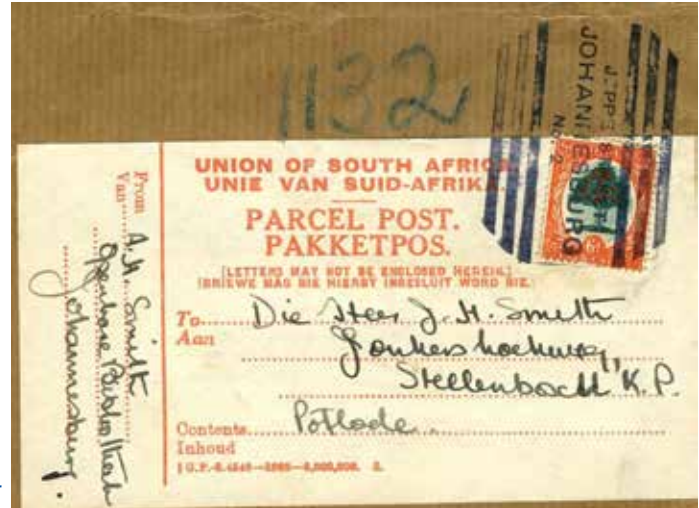 1132
JOHANNESBURG
No. 2
UNION OF SOUTH AFRICA
UNIE VAN SUID-AFRIKA
PARCEL POST.
PAKKETPOS.
[LETTERS MAY NOT BE ENCLOSED HEREIN.]
[BRIEWE MAG NIE HIERBY INGESLUIT WORD NIE.]
To Die Heer J. H. Smith
Aan
Jonkershoekweg,
Stellenbosch K.P.
Contents Potlode.
Inhoud
From A.H. Smith
Van Openbare Biblioteek
Johannesburg.